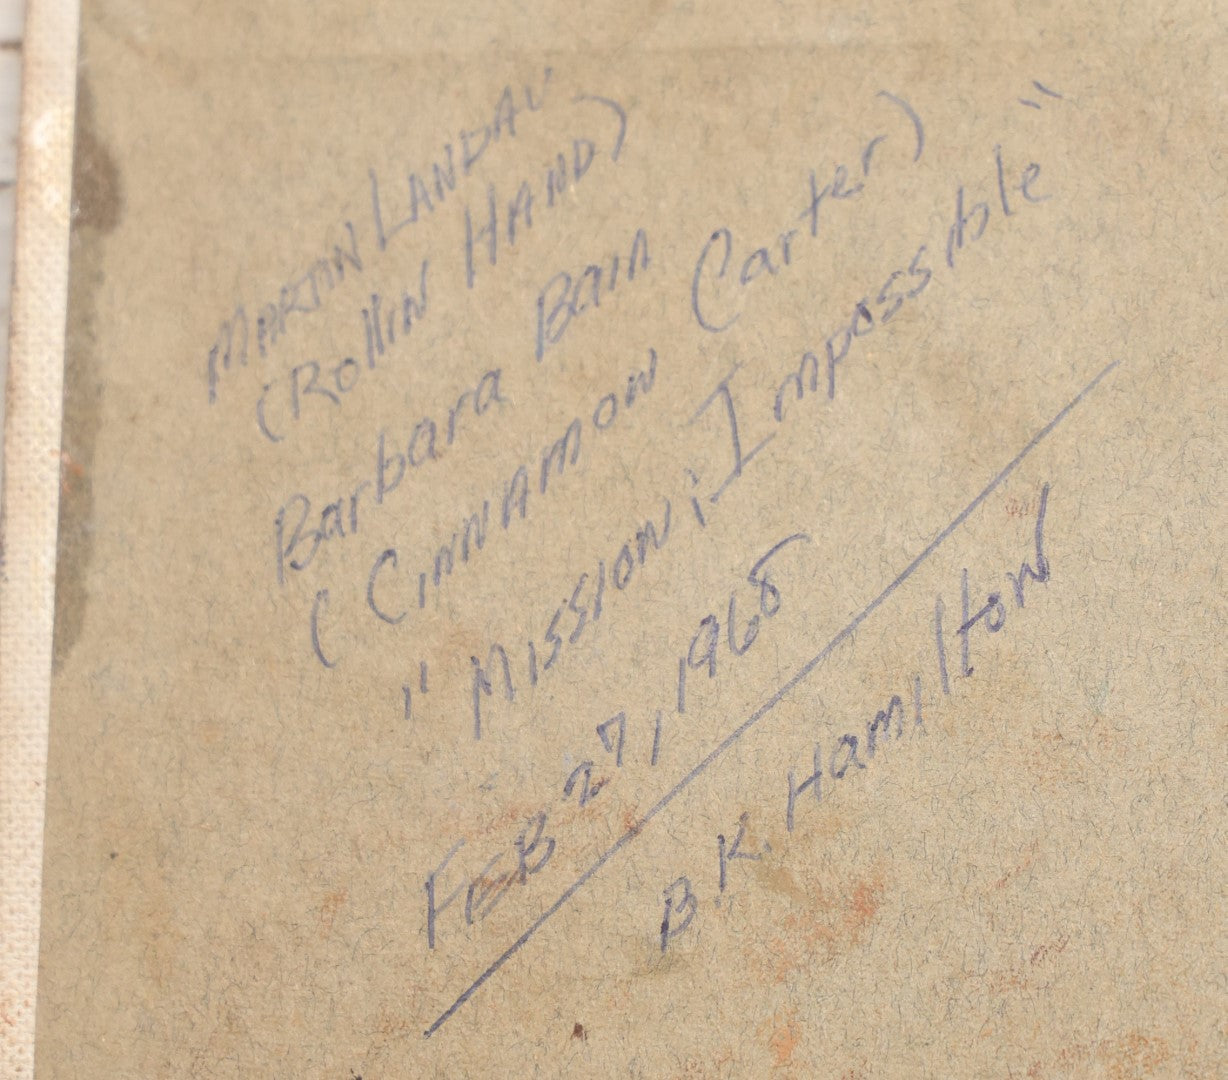 MARTIN LANDAU
(ROllIN HAND)
Barbara Bain
(CINNAMON Carter)
"MISSION: Impossible"
FEB 27, 1968
B.K. HamiltoN